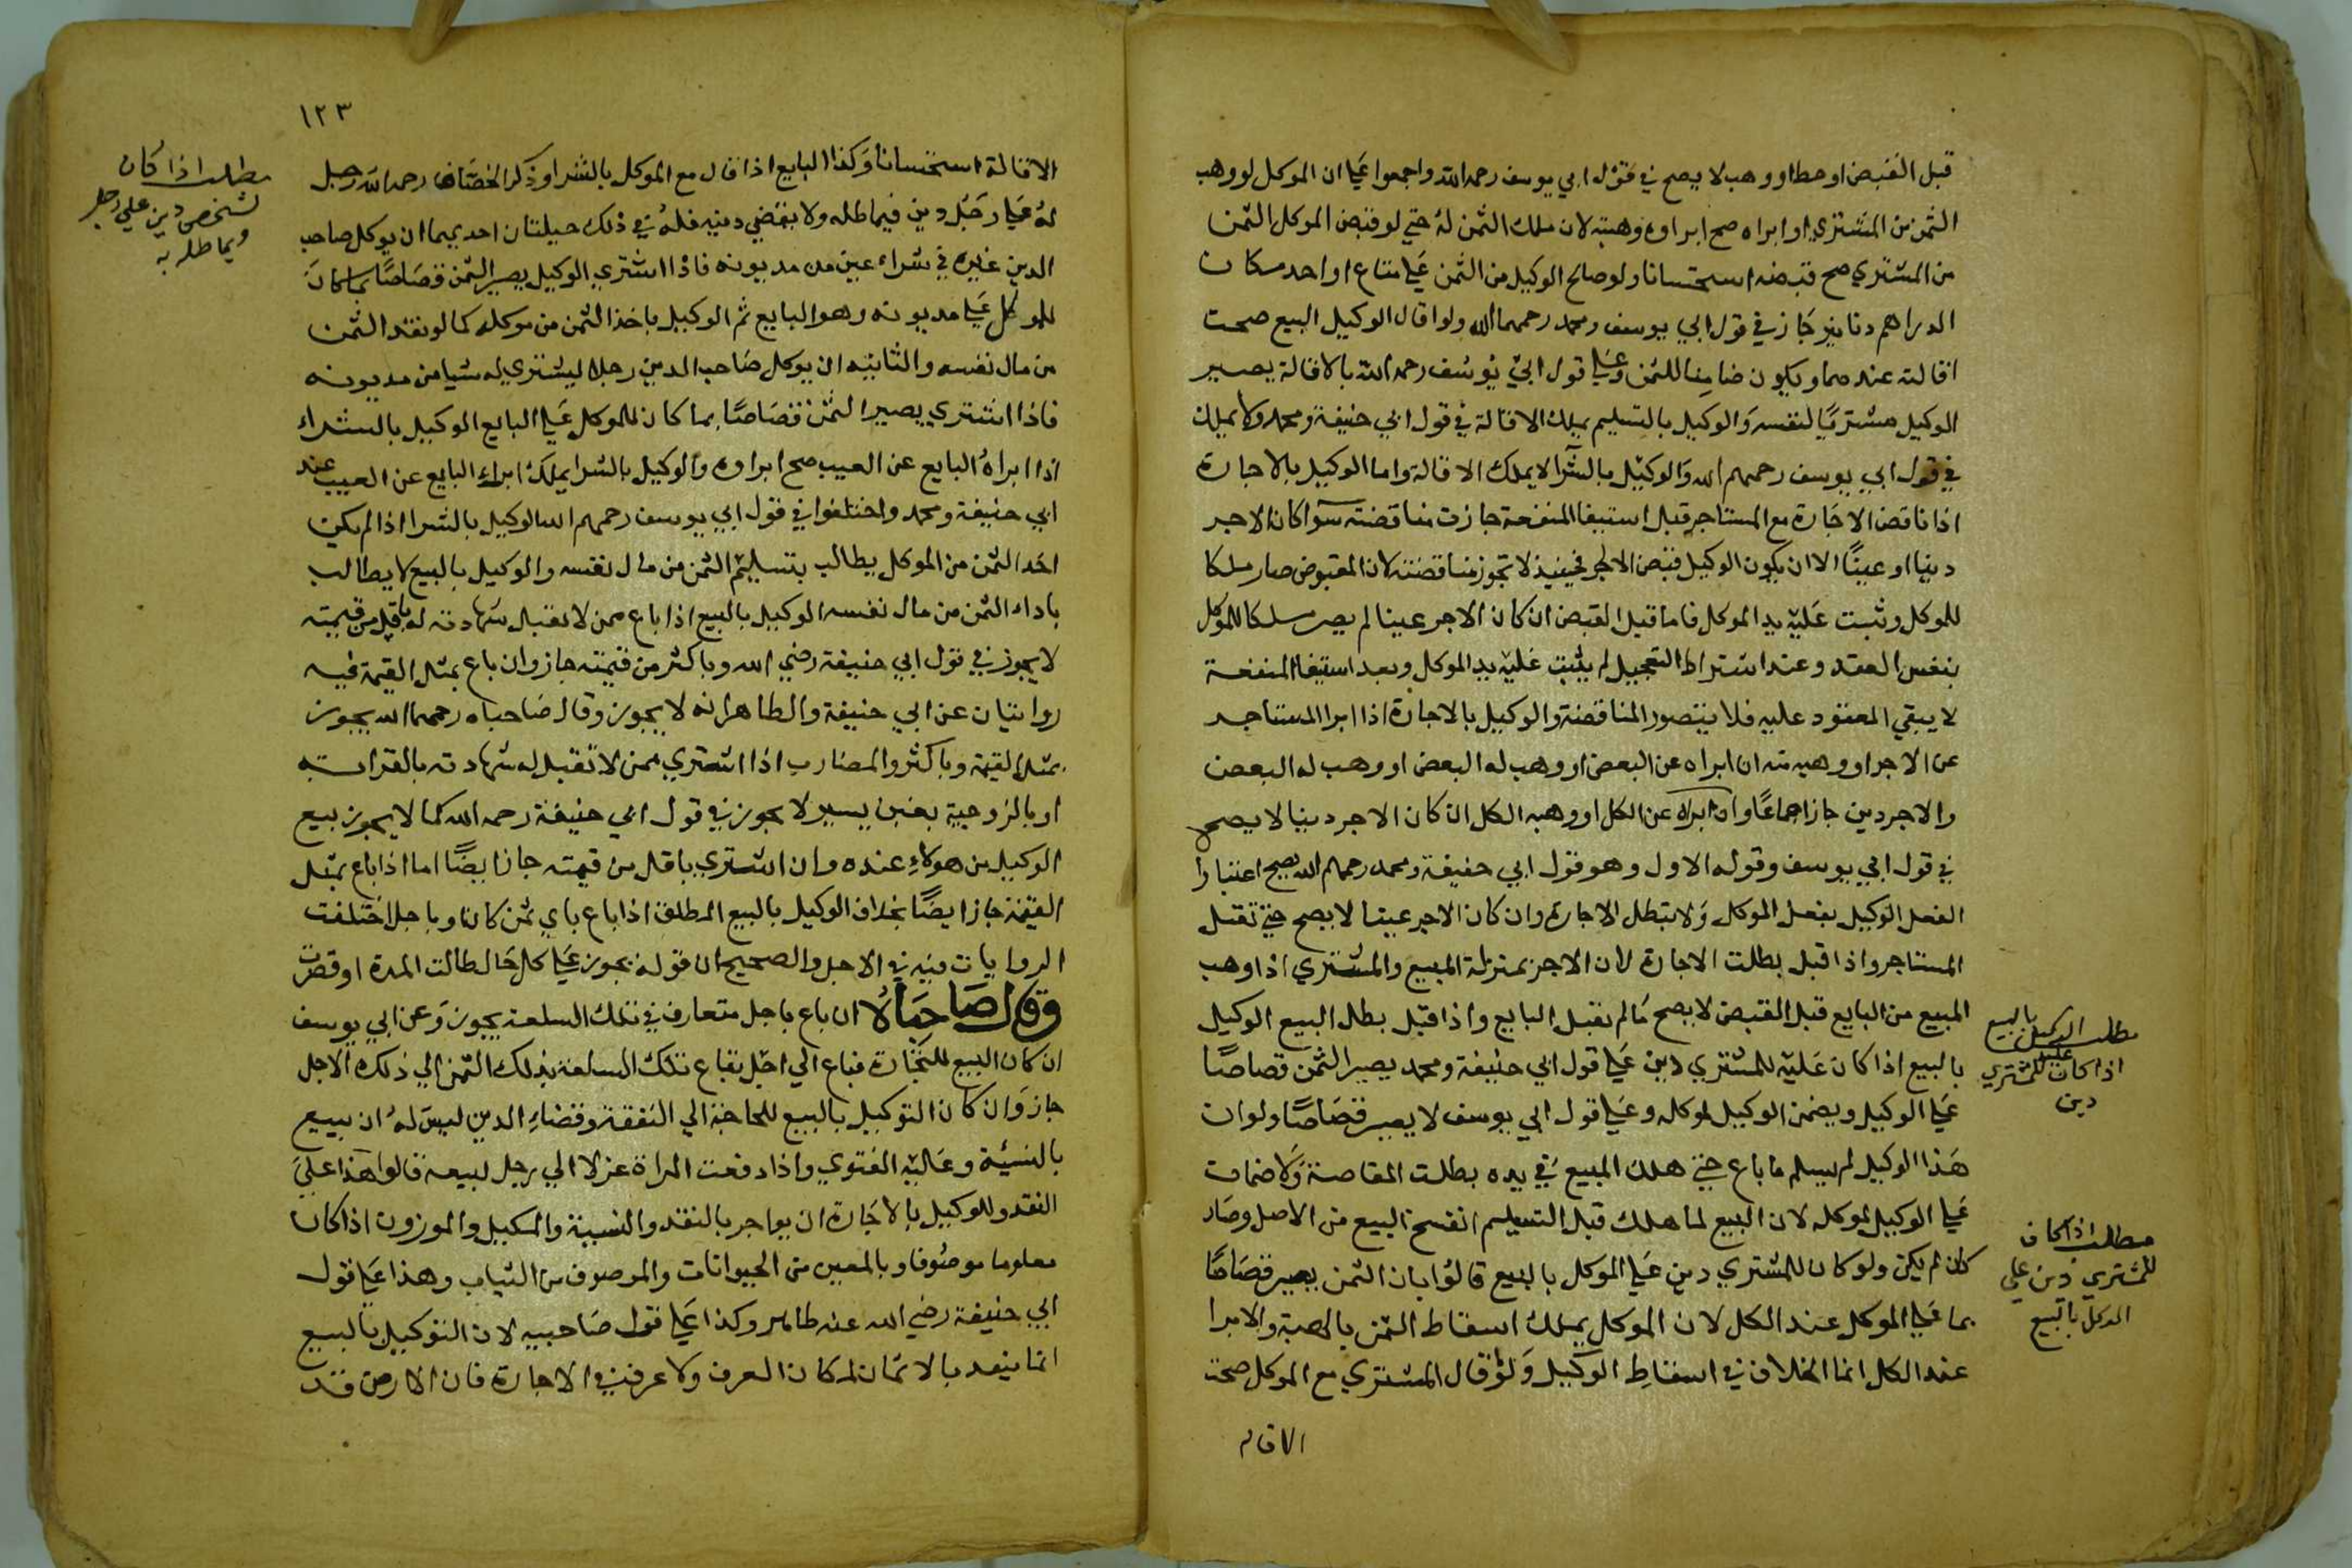 قبل القبض او حط او وهب لا يصح في قول ابي يوسف رحمه الله واجمعوا علي ان الموكل لو وهب
الثمن من المشتري او ابراه صح ابراوه وهبته لان ملك الثمن له حتي لو قبض الموكل الثمن
من المشتري صح قبضه استحسانا ولو صالح الوكيل من الثمن علي متاع او احد مكان
الدراهم دنانير جاز في قول ابي يوسف ومحمد رحمهما الله ولو اقال الوكيل البيع صحت
اقالته عندهما ويكون ضامنا للثمن وعلي قول ابي يوسف رحمه الله بالاقالة يصير
الوكيل مشتريا لنفسه والوكيل بالتسليم يملك الاقالة في قول ابي حنيفة ومحمد ولا يملك
في قول ابي يوسف رحمهم الله والوكيل بالشرا لا يملك الاقالة واما الوكيل بالاجارة
اذا ناقض الاجارة مع المستاجر قبل استيفا المنفعة جازت مناقضته سوا كان الاجر
دينا او عينا الا ان يكون الوكيل قبض الاجر فحينيذ لا تجوز مناقضته لان المقبوض صار ملكا
للموكل وثبت عليه يد الموكل فاما قبل القبض ان كان الاجر عينا لم يصر ملكا للموكل
بنفس العقد وعند اشتراط التعجيل لم يثبت عليه يد الموكل وبعد استيفا المنفعة
لا يبقي المعقود عليه فلا يتصور المناقضة والوكيل بالاجارة اذا ابرا المستاجر
عن الاجر او وهبه منه ان ابراه عن البعض او وهب له البعض
والاجر دين جاز اجماعا وان ابراه عن الكل او وهبه الكل ان كان الاجر دينا لا يصح
في قول ابي يوسف وقوله الاول وهو قول ابي حنيفة ومحمد رحمهم الله يصح اعتبارا
الفعل الوكيل بفعل الموكل ولا تبطل الاجارة وان كان الاجر عينا لا يصح حتي تقبل
المستاجر واذا قبل بطلت الاجارة لان الاجر بمنزلة المبيع والمشتري اذا وهب
المبيع من البايع قبل القبض لا يصح مالم يقبل البايع واذا قبل بطل البيع الوكيل
بالبيع اذا كان عليه للمشتري دين علي قول ابي حنيفة ومحمد يصير الثمن قصاصا
علي الوكيل ويضمن الوكيل لموكله وعلي قول ابي يوسف لا يصير قصاصا ولو ان
هذا الوكيل لم يسلم ما باع حتي هلك المبيع في يده بطلت المقاصة ولا ضمان
علي الوكيل لموكله لان البيع لما هلك قبل التسليم انفسخ البيع من الاصل وصار
كان لم يكن ولو كان للمشتري دين علي الموكل بالبيع قالوا بان الثمن يصير قصاصا
بما علي الموكل عند الكل لان الموكل يملك اسقاط الثمن بالهبة والابرا
عند الكل انما الخلاف في اسقاط الوكيل ولو قال المشتري مع الموكل صحت
الاقاله
مطلب الوكيل بالبيع
اذا كان عليه للمشتري
دين
مطلب اذا كان
للمشتري دين علي
الموكل بالبيع
١٢٣
الاقالة استحسانا وكذا البايع اذا قال مع الموكل بالشرا وذكر الخصاف رحمه الله رجل
له علي رجل دين فيماطله ولا يقضي دينه فله في ذلك حيلتان احديهما ان يوكل صاحب
الدين غيره في شراء عين من مديونه فاذا اشتري الوكيل يصير الثمن قصاصا بما كان
للموكل علي مديونه وهو البايع ثم الوكيل ياخذ الثمن من موكله كما لو نقد الثمن
من مال نفسه والثانيه ان يوكل صاحب الدين رجلا ليشتري له شيا من مديونه
فاذا اشتري يصير الثمن قصاصا بما كان للموكل علي البايع الوكيل بالشراء
اذا ابراه البايع عن العيب صح ابراوه والوكيل بالشرا يملك ابراء البايع عن العيب عند
ابي حنيفة ومحمد واختلفوا في قول ابي يوسف رحمهم الله الوكيل بالشرا اذا لم يكن
اخذ الثمن من الموكل يطالب بتسليم الثمن من مال نفسه والوكيل بالبيع لا يطالب
باداء الثمن من مال نفسه الوكيل بالبيع اذا باع ممن لا تقبل شهادته له باقل من قيمته
لا يجوز في قول ابي حنيفة رضي الله وباكثر من قيمته جاز وان باع بمثل القيمة فيه
روايتان عن ابي حنيفة والظاهر انه لا يجوز وقال صاحباه رحمهما الله يجوز
بمثل القيمة وباكثر والمضارب اذا اشتري ممن لا تقبل له شهادته بالقرابة
او بالزوجية بغبن يسير لا يجوز في قول ابي حنيفة رحمه الله كما لا يجوز بيع
الوكيل من هولاء عنده وان اشتري باقل من قيمته جاز ايضا اما اذا باع بمثل
القيمة جاز ايضا بخلاف الوكيل بالبيع المطلق اذا باع باي ثمن كان وباجل اختلفت
الروايات فيه في الاجل والصحيح ان قوله يجوز علي كل حال طالت المدة او قصرت
وقال صاحباه ان باع باجل متعارف في تلك السلعة يجوز وعن ابي يوسف
ان كان البيع للتجارة فباع الي اجل تباع تلك السلعة بذلك الثمن الي ذلك الاجل
جاز وان كان التوكيل بالبيع للحاجة الي النفقة وقضاء الدين ليس له ان يبيع
بالنسيئة وعليه الفتوي واذا دفعت المراة غزلا الي رجل لبيعه قالوا هذا علي
النقد وللوكيل بالاجارة ان يواجر بالنقد والنسية والمكيل والموزون اذا كان
معلوما موصوفا وبالمعين من الحيوانات والموصوف من الثياب وهذا علي قول
ابي حنيفة رضي الله عنه ظاهر وكذا علي قول صاحبيه لان التوكيل بالبيع
انما يتقيد بالاثمان لمكان العرف ولا عرف في الاجارة فان الارض قد
مطلب اذا كان
لشخص دين علي رجل
ويماطله به